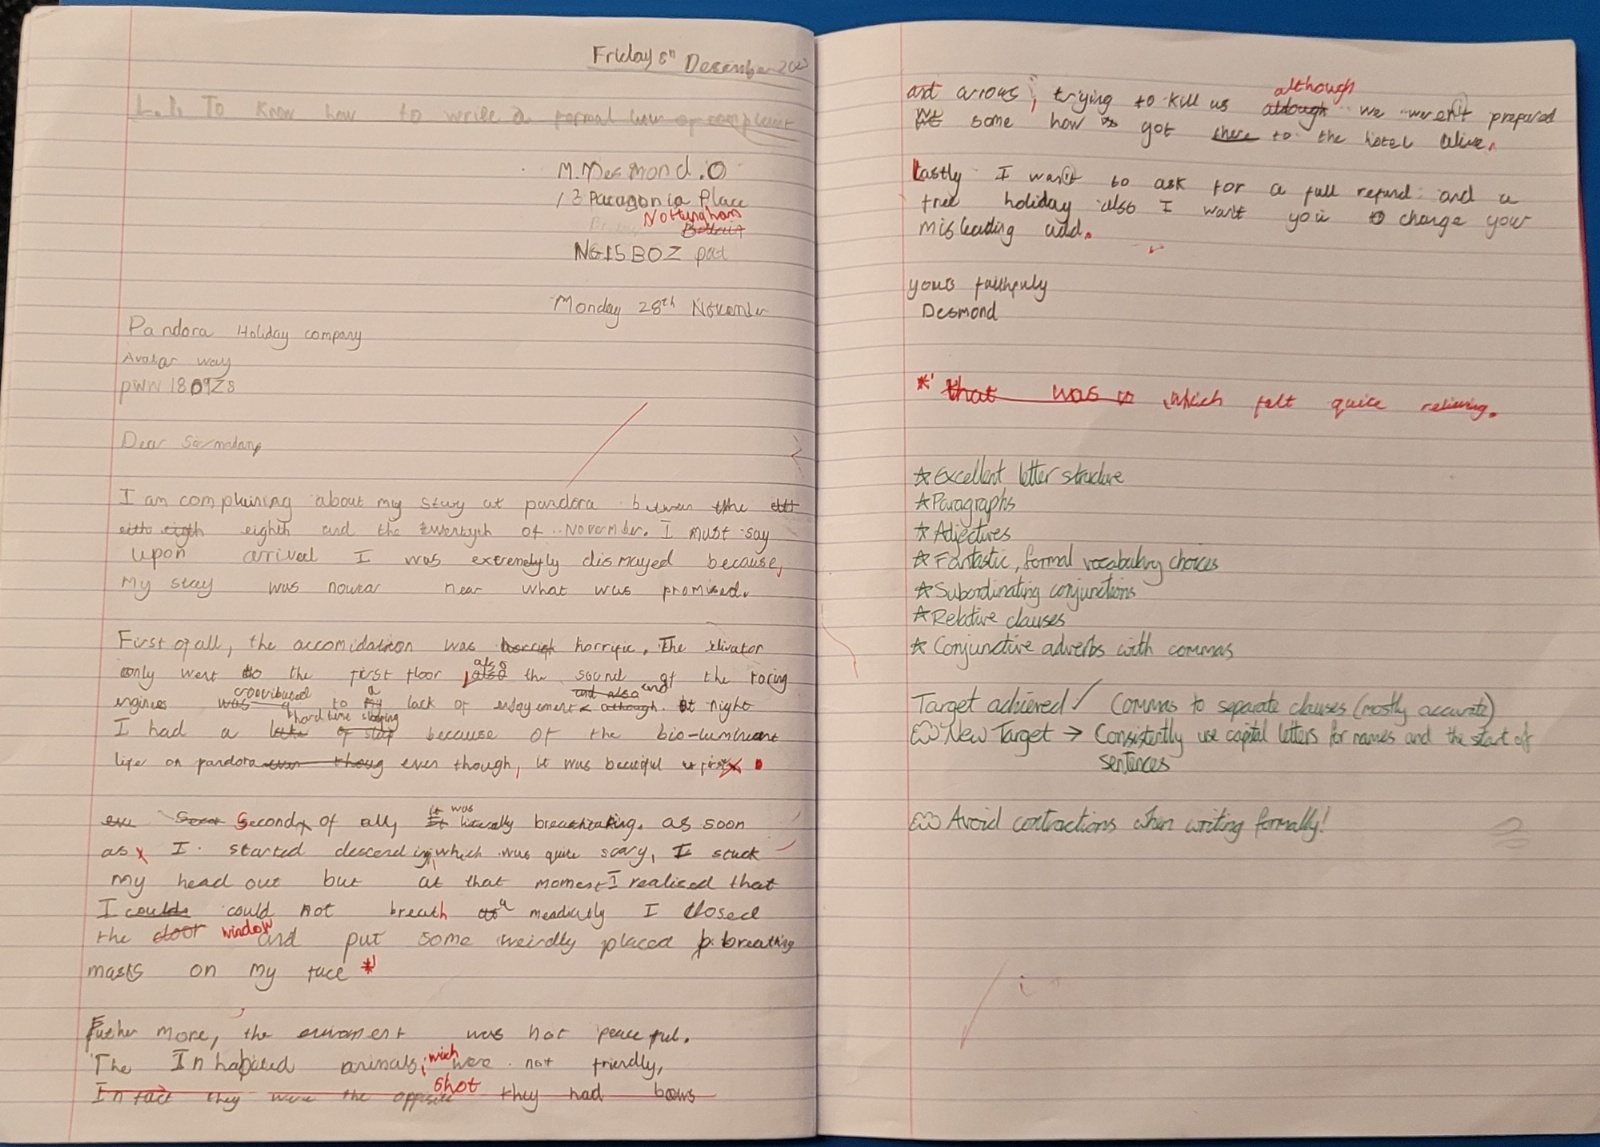 Friday 8th Desember 202
L.I. To know how to write a formal
M.Mesmond.O
13 Paragonia Place
Nottingham
NG15BOZ
Monday 28th November
Pandora Holiday company
Avatar way
pWW 18 09ZS
Dear
I am complaining about my stay at pandora the
eighth and the of November. I must say
upon arrival I was extremelyly dismayed because,
My stay was nowar near what was promised.
First of all, the accomidation was horrific. The elivator
only went to the first floor, also the sound of the roring
engines to a lack of enjoyment and at night
I had a hard time sleeping because of the bio-luminant
life on pandora even though, it was
Second of all, it was literally breathtaking. as soon
as I started descending, which was quite scary, I stuck
my head out but at that moment I realised that
I could not breath I closed
the window and put some weirdly placed breathing
masks on my face *
Futher more, the was not peaceful.
The Inhabited animals, wich were not friendly,
In fact they were the opposite shot they had bows
and arrows, trying to kill us although we weren't prepared
We some how got there to the hotel alive.
Lastly I want to ask for a full refund and a
free holiday also I want you to change your
misleading add.
yours faithfuly
Desmond
* that was which felt quite relieving.
☆Excellent letter structure
☆Paragraphs
☆Adjectives
☆Fantastic, formal vocabulary choices
☆Subordinating conjunctions
☆Relative clauses
☆Conjunctive adverbs with commas
Target achieved ✓ Commas to separate clauses (mostly accurate)
New Target → Consistently use capital letters for names and the start of
sentences
Avoid contractions when writing formally!